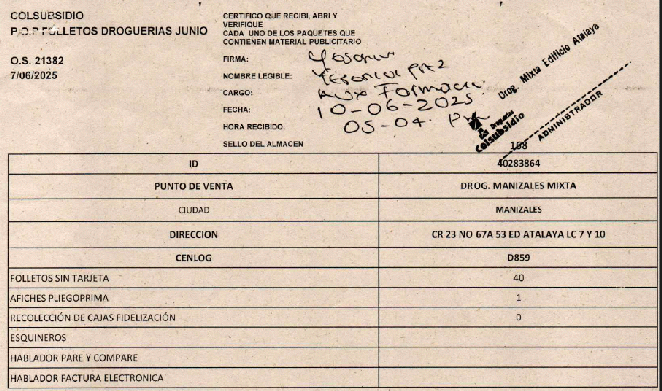 COLSUBSIDIO
P.O.P FOLLETOS DROGUERIAS JUNIO
O.S. 21382
7/06/2025
CERTIFICO QUE RECIBI, ABRI Y
VERIFIQUE
CADA UNO DE LOS PAQUETES QUE
CONTIENEN MATERIAL PUBLICITARIO
FIRMA:
NOMBRE LEGIBLE:
CARGO:
FECHA: 10-06-2025
HORA RECIBIDO: 05-04
SELLO DEL ALMACEN
Drog. Mixta Edificio Atalaya
colsubsidio
ADMINISTRADOR
188
ID 40283864
PUNTO DE VENTA DROG. MANIZALES MIXTA
CIUDAD MANIZALES
DIRECCION CR 23 NO 67A 53 ED ATALAYA LC 7 Y 10
CENLOG D859
FOLLETOS SIN TARJETA 40
AFICHES PLIEGOPRIMA 1
RECOLECCIÓN DE CAJAS FIDELIZACIÓN 0
ESQUINEROS
HABLADOR PARE Y COMPARE
HABLADOR FACTURA ELECTRONICA